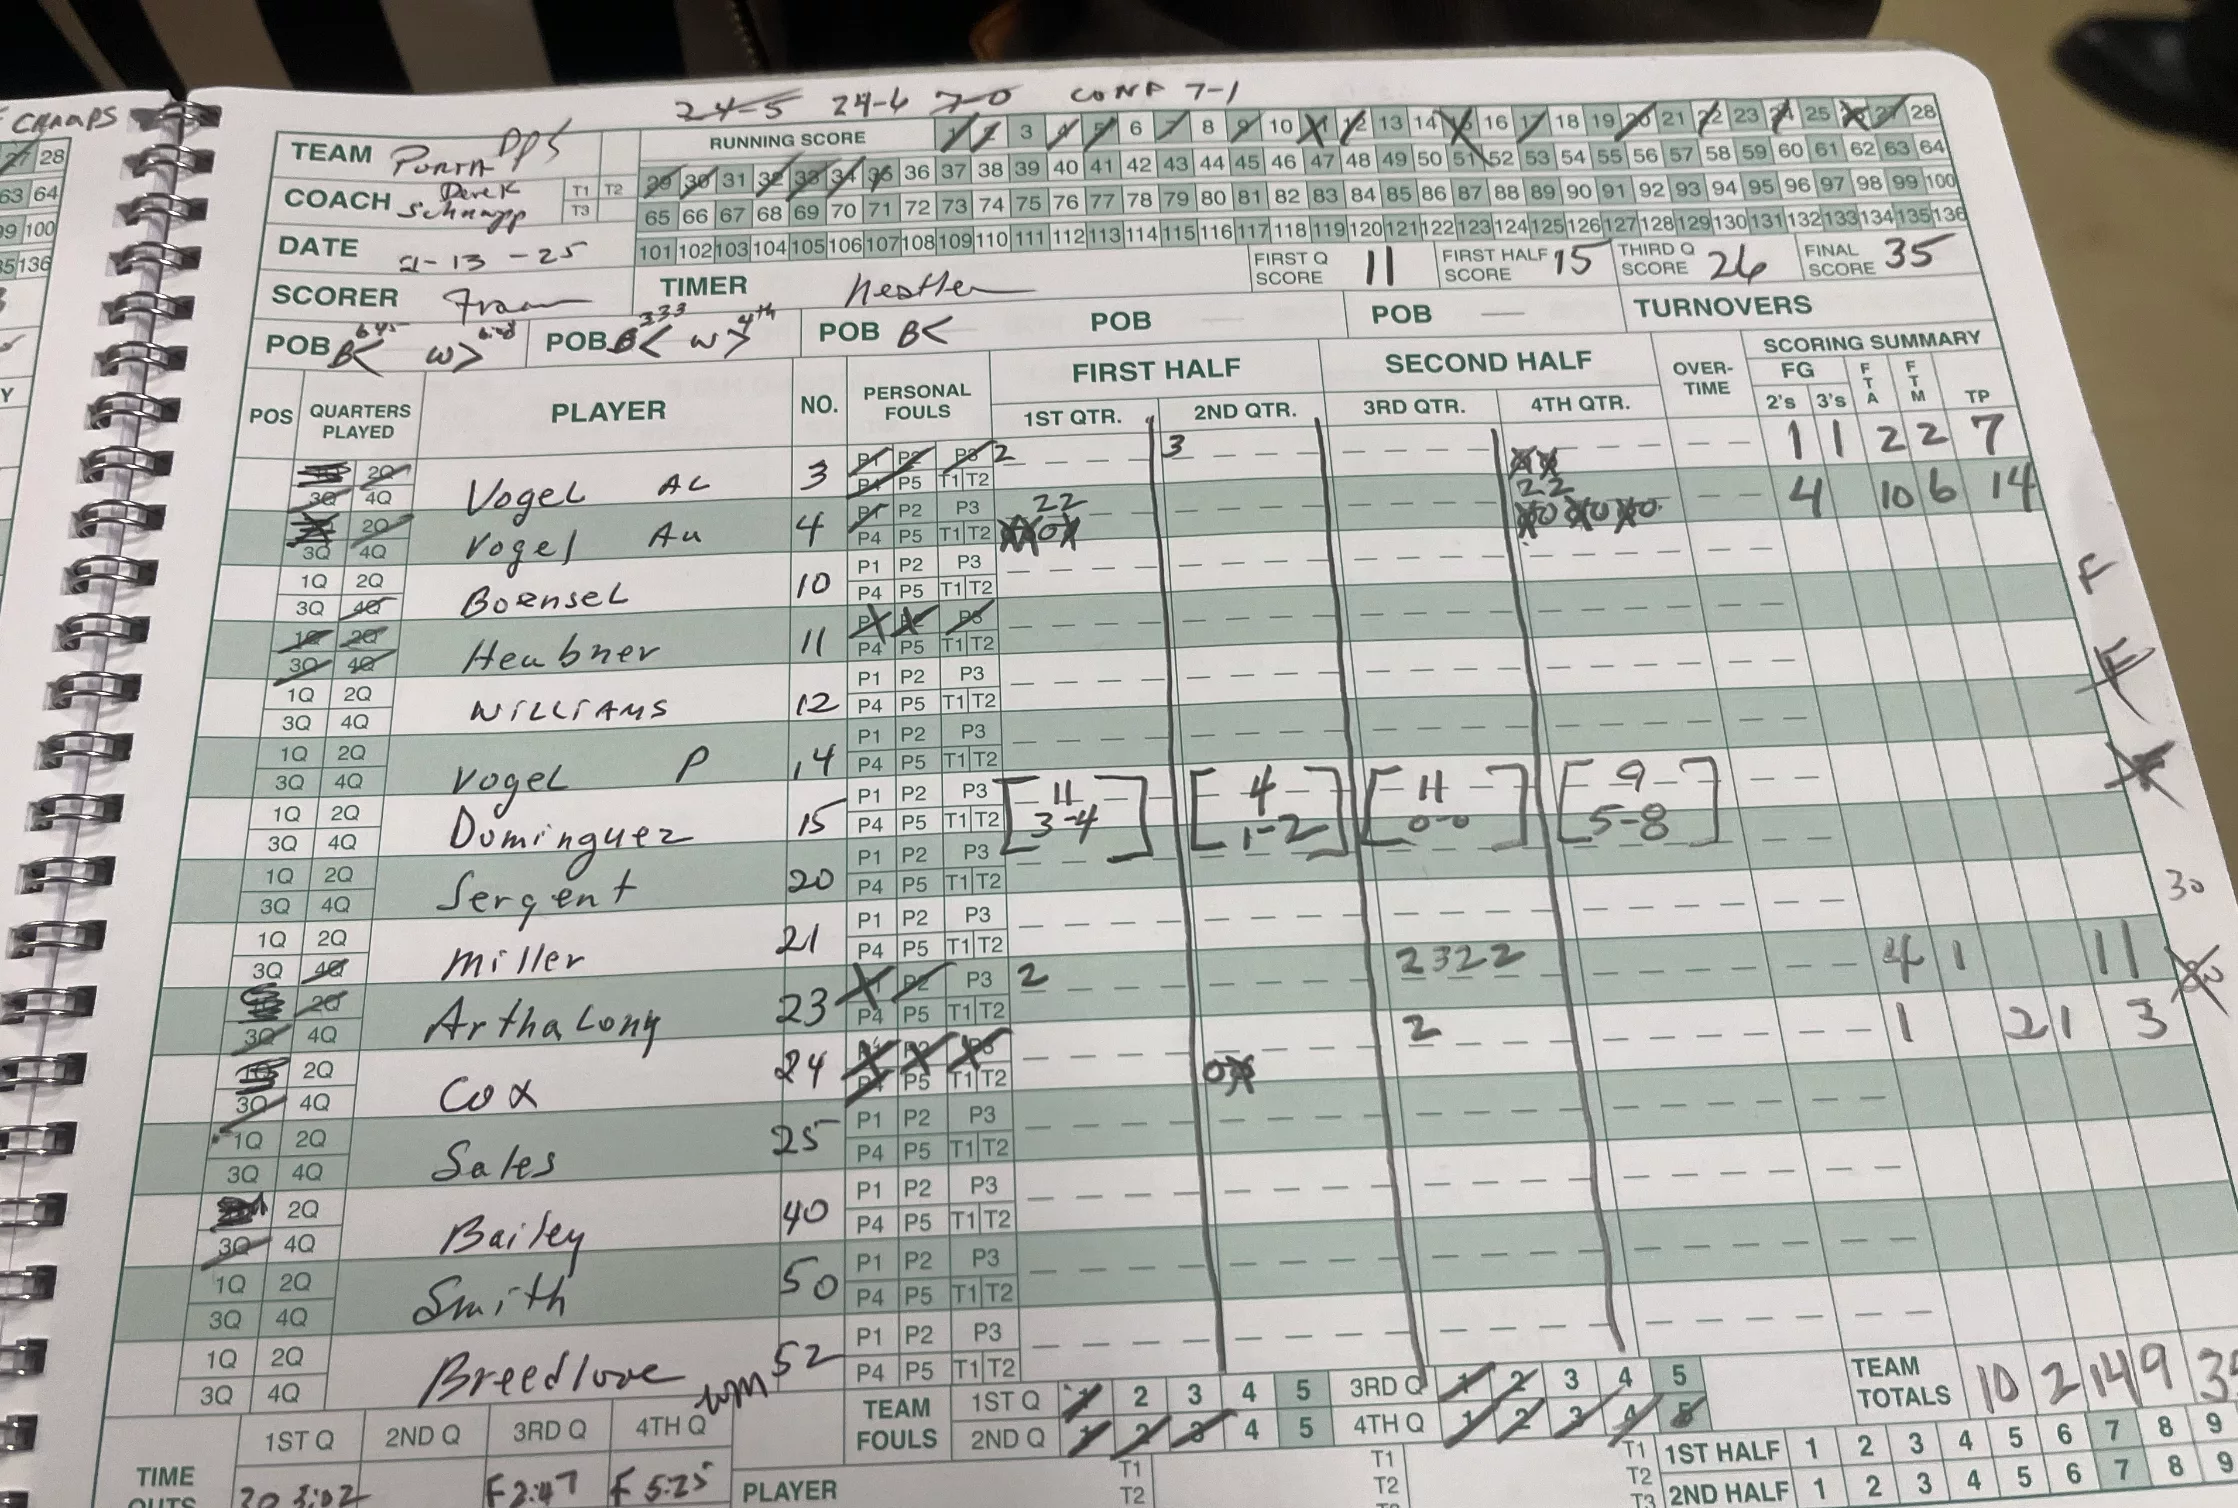 CHAMPS
24-5 24-6 7-0 CONF 7-1
TEAM PORTA DPS
RUNNING SCORE 1 2 3 4 5 6 7 8 9 10 11 12 13 14 15 16 17 18 19 20 21 22 23 24 25 26 27 28
29 30 31 32 33 34 35 36 37 38 39 40 41 42 43 44 45 46 47 48 49 50 51 52 53 54 55 56 57 58 59 60 61 62 63 64
COACH Derek Schnapp T1 T2 T3
65 66 67 68 69 70 71 72 73 74 75 76 77 78 79 80 81 82 83 84 85 86 87 88 89 90 91 92 93 94 95 96 97 98 99 100
101 102 103 104 105 106 107 108 109 110 111 112 113 114 115 116 117 118 119 120 121 122 123 124 125 126 127 128 129 130 131 132 133 134 135 136
DATE 2-13-25
FIRST Q SCORE 11 FIRST HALF SCORE 15 THIRD Q SCORE 26 FINAL SCORE 35
SCORER TIMER
POB B< W> POB B< 333 W> 4th POB B< POB POB TURNOVERS
POS QUARTERS PLAYED PLAYER NO. PERSONAL FOULS FIRST HALF SECOND HALF OVER-TIME SCORING SUMMARY
1ST QTR. 2ND QTR. 3RD QTR. 4TH QTR. FG 2's 3's FTA FTM TP
2Q 3Q 4Q Vogel AL 3 P1 P2 P3 P4 P5 T1 T2 2 3 1 1 2 2 7
2Q 3Q 4Q Vogel Au 4 P1 P2 P3 P4 P5 T1 T2 22 22 4 10 6 14
1Q 2Q 3Q 4Q Boensel 10 P1 P2 P3 P4 P5 T1 T2
1Q 2Q 3Q 4Q Heubner 11 P1 P2 P3 P4 P5 T1 T2
1Q 2Q 3Q 4Q Williams 12 P1 P2 P3 P4 P5 T1 T2
1Q 2Q 3Q 4Q Vogel P 14 P1 P2 P3 P4 P5 T1 T2
1Q 2Q 3Q 4Q Dominguez 15 P1 P2 P3 P4 P5 T1 T2 11 3-4 4 1-2 11 0-0 9 5-8
1Q 2Q 3Q 4Q Sergent 20 P1 P2 P3 P4 P5 T1 T2
1Q 2Q 3Q 4Q Miller 21 P1 P2 P3 P4 P5 T1 T2
2Q 3Q 4Q Arthalony 23 P1 P2 P3 P4 P5 T1 T2 2 2322 4 1 11
1Q 2Q 3Q 4Q Cox 24 P1 P2 P3 P4 P5 T1 T2 2 1 2 1 3
1Q 2Q 3Q 4Q Sales 25 P1 P2 P3 P4 P5 T1 T2
2Q 3Q 4Q Bailey 40 P1 P2 P3 P4 P5 T1 T2
1Q 2Q 3Q 4Q Smith 50 P1 P2 P3 P4 P5 T1 T2
1Q 2Q 3Q 4Q Breedlove 52 P1 P2 P3 P4 P5 T1 T2
F
F
30
TEAM FOULS 1ST Q 1 2 3 4 5 3RD Q 1 2 3 4 5
2ND Q 1 2 3 4 5 4TH Q 1 2 3 4 5
TEAM TOTALS 10 2 14 9
TIME OUTS 1ST Q 2ND Q 3RD Q 4TH Q
3:02 F 2:47 F 5:25
PLAYER T1 T2 T1 T2 T1 T2 T3
1ST HALF 1 2 3 4 5 6 7 8 9
2ND HALF 1 2 3 4 5 6 7 8 9